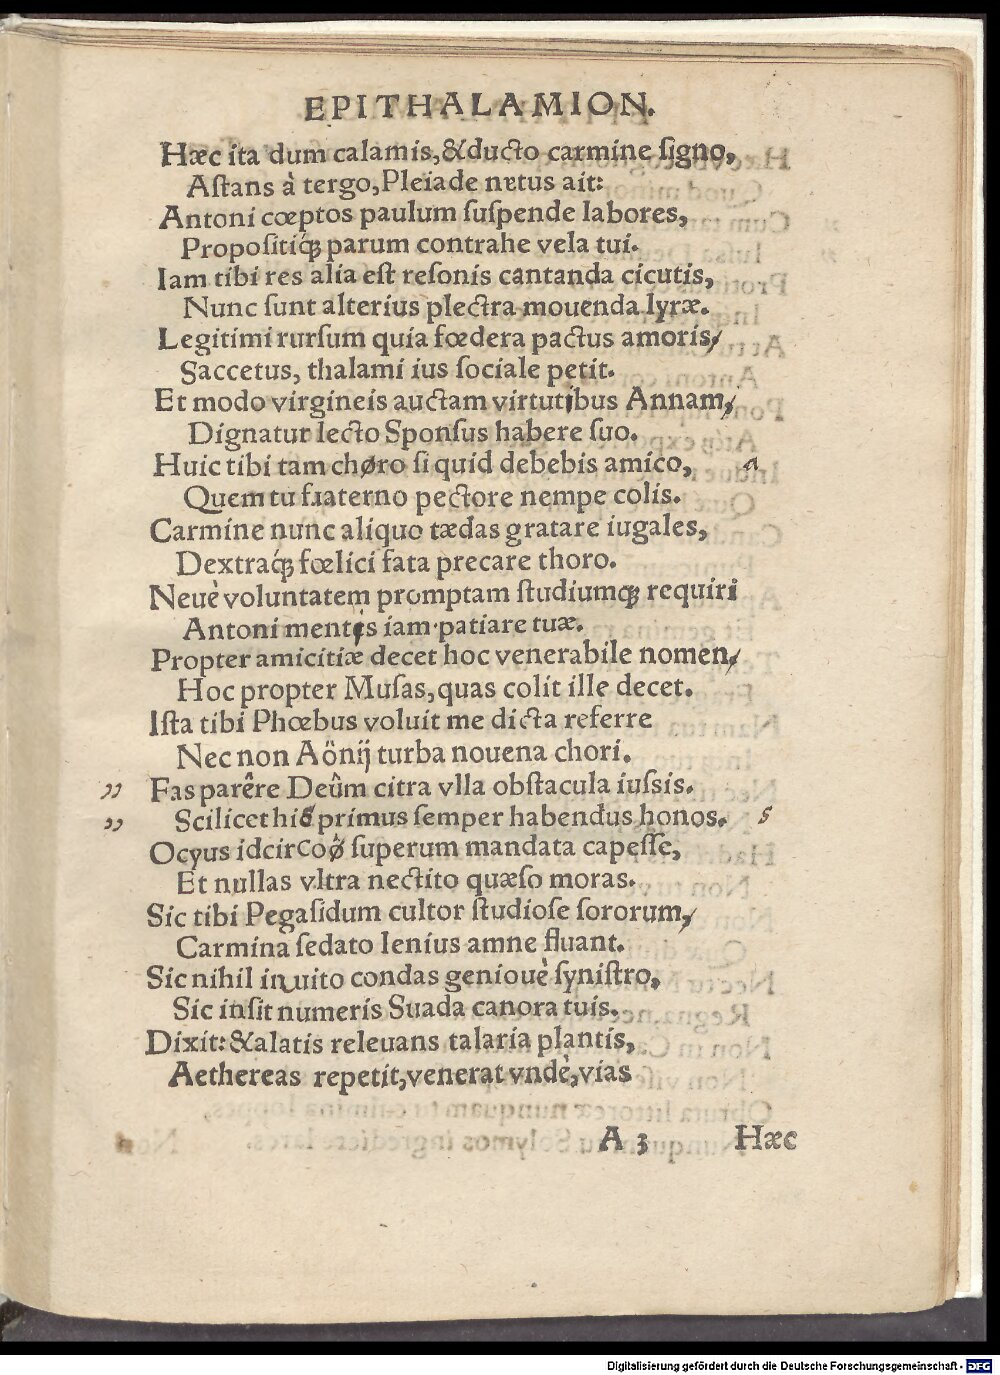 EPITHALAMION.
Hæc ita dum calamis, & ducto carmine ſigno,
Aſtans à tergo, Pleiade natus ait:
Antoni cœptos paulum ſuſpende labores,
Propoſitiq́ꝫ parum contrahe vela tui.
Iam tibi res alia eſt reſonis cantanda cicutis,
Nunc ſunt alterius plectra mouenda lyræ.
Legitimi rurſum quia fœdera pactus amoris,
Saccetus, thalami ius ſociale petit.
Et modo virgineis auctam virtutibus Annam,
Dignatur lecto Sponſus habere ſuo.
Huic tibi tam choro ſi quid debebis amico, a
Quem tu fraterno pectore nempe colis.
Carmine nunc aliquo tædas gratare iugales,
Dextraq́ꝫ fœlici fata precare thoro.
Neuè voluntatem promptam ſtudiumqꝫ requiri
Antoni mentis iam patiare tuæ.
Propter amicitiæ decet hoc venerabile nomen,
Hoc propter Muſas, quas colit ille decet.
Iſta tibi Phœbus voluit me dicta referre
Nec non Aönij turba nouena chori.
" Fas parêre Deûm citra vlla obſtacula iuſsis.
" Scilicet hic primus ſemper habendus honos. s
Ocyus idcirco ò ſuperum mandata capeſſe,
Et nullas vltra nectito quæſo moras.
Sic tibi Pegaſidum cultor ſtudioſe ſororum,
Carmina ſedato lenius amne fluant.
Sic nihil inuito condas geniouè ſyniſtro,
Sic inſit numeris Suada canora tuis.
Dixit: & alatis releuans talaria plantis,
Aethereas repetit, venerat vndè, vias
A 3 Hæc
Digitalisierung gefördert durch die Deutsche Forschungsgemeinschaft - DFG